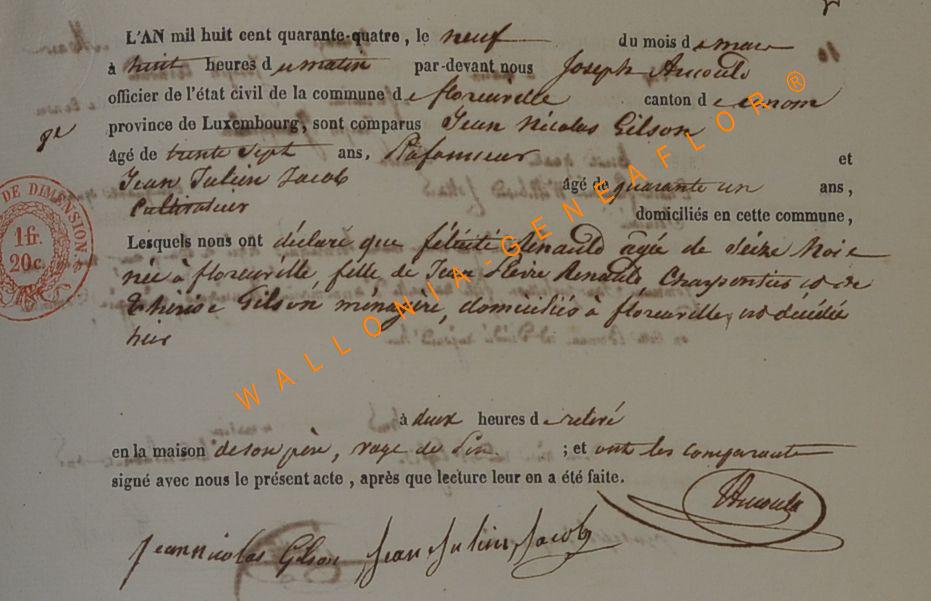 L'AN mil huit cent quarante-quatre, le neuf du mois de mars
à huit heures du matin par-devant nous Joseph Arnould
officier de l'état civil de la commune de florenville canton de
province de Luxembourg, sont comparus Jean Nicolas Gilson
âgé de trente Sept ans, Plafonneur et
Jean Julien Jacob âgé de quarante un ans,
Cultivateur domiciliés en cette commune,
Lesquels nous ont déclaré que félicité Renauld agée de Seize Mois
née à florenville fille de Jean Pierre Renauld Charpentier et de
thérèse Gilson ménagère, domiciliés à florenville, est décédée
hier
à deux heures de relevé
en la maison de son père, ; et ont les comparants
signé avec nous le présent acte, après que lecture leur en a été faite.
Jean nicolas Gilson Jean Julien Jacob
DE DIMENSION.
1 fr.
20c.
WALLONIA-GENEAFLOR®